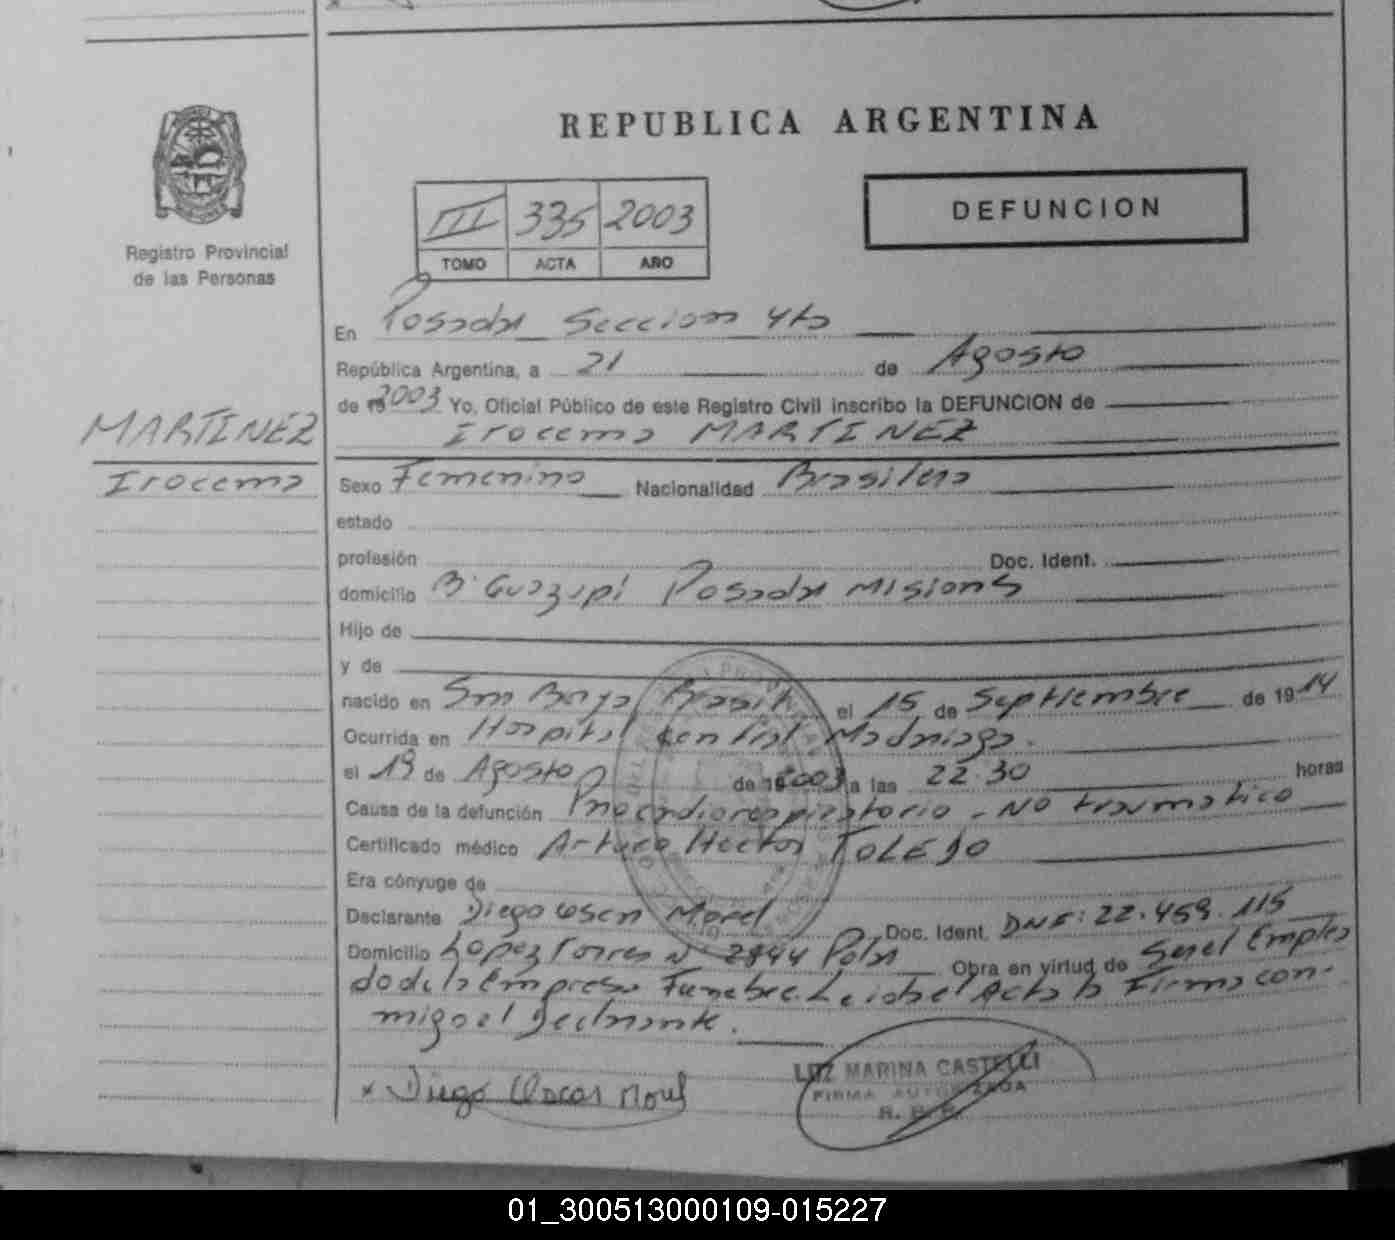 REPUBLICA ARGENTINA
Registro Provincial
de las Personas
III 335 2003
TOMO ACTA AÑO
DEFUNCION
En Posadas Seccion 4ta
República Argentina, a 21 de Agosto
de 19 2003 Yo, Oficial Público de este Registro Civil inscribo la DEFUNCION de
MARTINEZ
Irocema
Irocema MARTINEZ
Sexo Femenino Nacionalidad Brasilera
estado
profesión Doc. Ident.
domicilio B. Guazupi Posadas Misiones
Hijo de
y de
nacido en San Borja Brasil el 15 de Septiembre de 19 14
Ocurrida en Hospital Central Madariaga.
el 19 de Agosto de 19 2003 a las 22.30 horas
Causa de la defunción Cardiorespiratorio - No traumatico
Certificado médico Arturo Hector TOLEDO
Era cónyuge de
Declarante Diego Morel Doc. Ident. DNI: 22.459.115
Domicilio Lopez Torres N 2844 Pdas Obra en virtud de Ser el Emplea
do de la Empresa Funebre. Leida el Acta la Firma con
migo el Declarante.
x Diego Oscar Morel
LUZ MARINA CASTELLI
FIRMA AUTORIZADA
R. P. P.
01_300513000109-015227